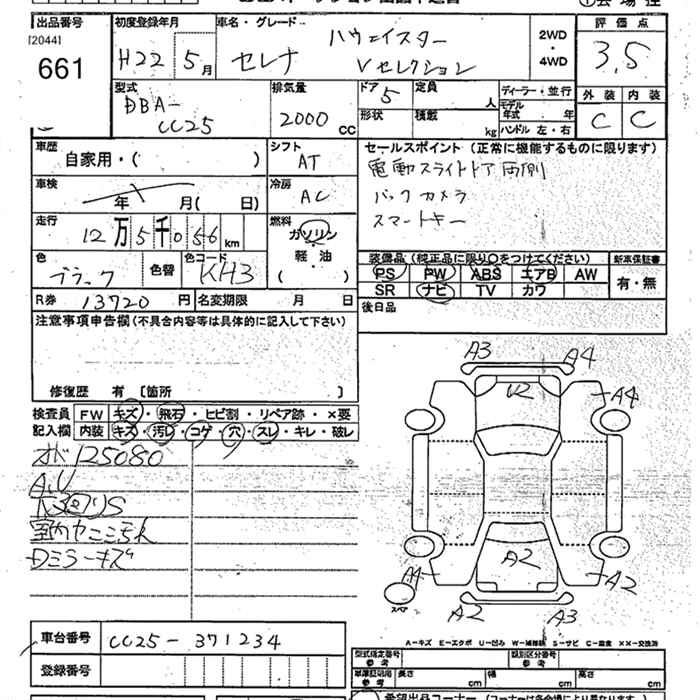 ①会場控
出品番号
[2044]
661
初度登録年月
H22 5月
車名・グレード
セレナ
ハウェイスター
Vセレクション
2WD
・
4WD
評価点
3.5
型式
DBA-
CC25
排気量
2000 CC
ドア 5
定員 人
形状
積載 kg
ディーラー・並行
モデル年式 年
ハンドル 左・右
外装 内装
C C
車歴
自家用・( )
シフト
AT
車検
年 月( 日)
冷房
AC
走行
12万5千056km
燃料
ガソリン
・
軽油
( )
色
ブラック
色替
色コード
KH3
R券 13720円
名変期限 月 日
セールスポイント (正常に機能するものに限ります)
電動スライドドア両側
バックカメラ
スマートキー
装備品 (純正品に限り○をつけてください)
PS PW ABS エアB AW
SR ナビ TV カワ
新車保証書
有・無
後日品
注意事項申告欄(不具合内容等は具体的に記入して下さい)
修復歴 有 〔箇所 〕
検査員 FW キズ・飛石・ヒビ割・リペア跡・×要
記入欄 内装 キズ・汚レ・コゲ・穴・スレ・キレ・破レ
オド125080
A.U
室内
DミラーキズA3 A4
U2
A4
A2
A4 A2
スペア
A2 A3
車台番号 CC25-371234
登録番号
A-キズ E-エクボ U-凹み W-補修跡 S-サビ C-腐食 ××-交換済
型式指定番号
参考
類別区分番号
参考
車庫証明用
参考
長さ cm 幅 cm 高さ cm